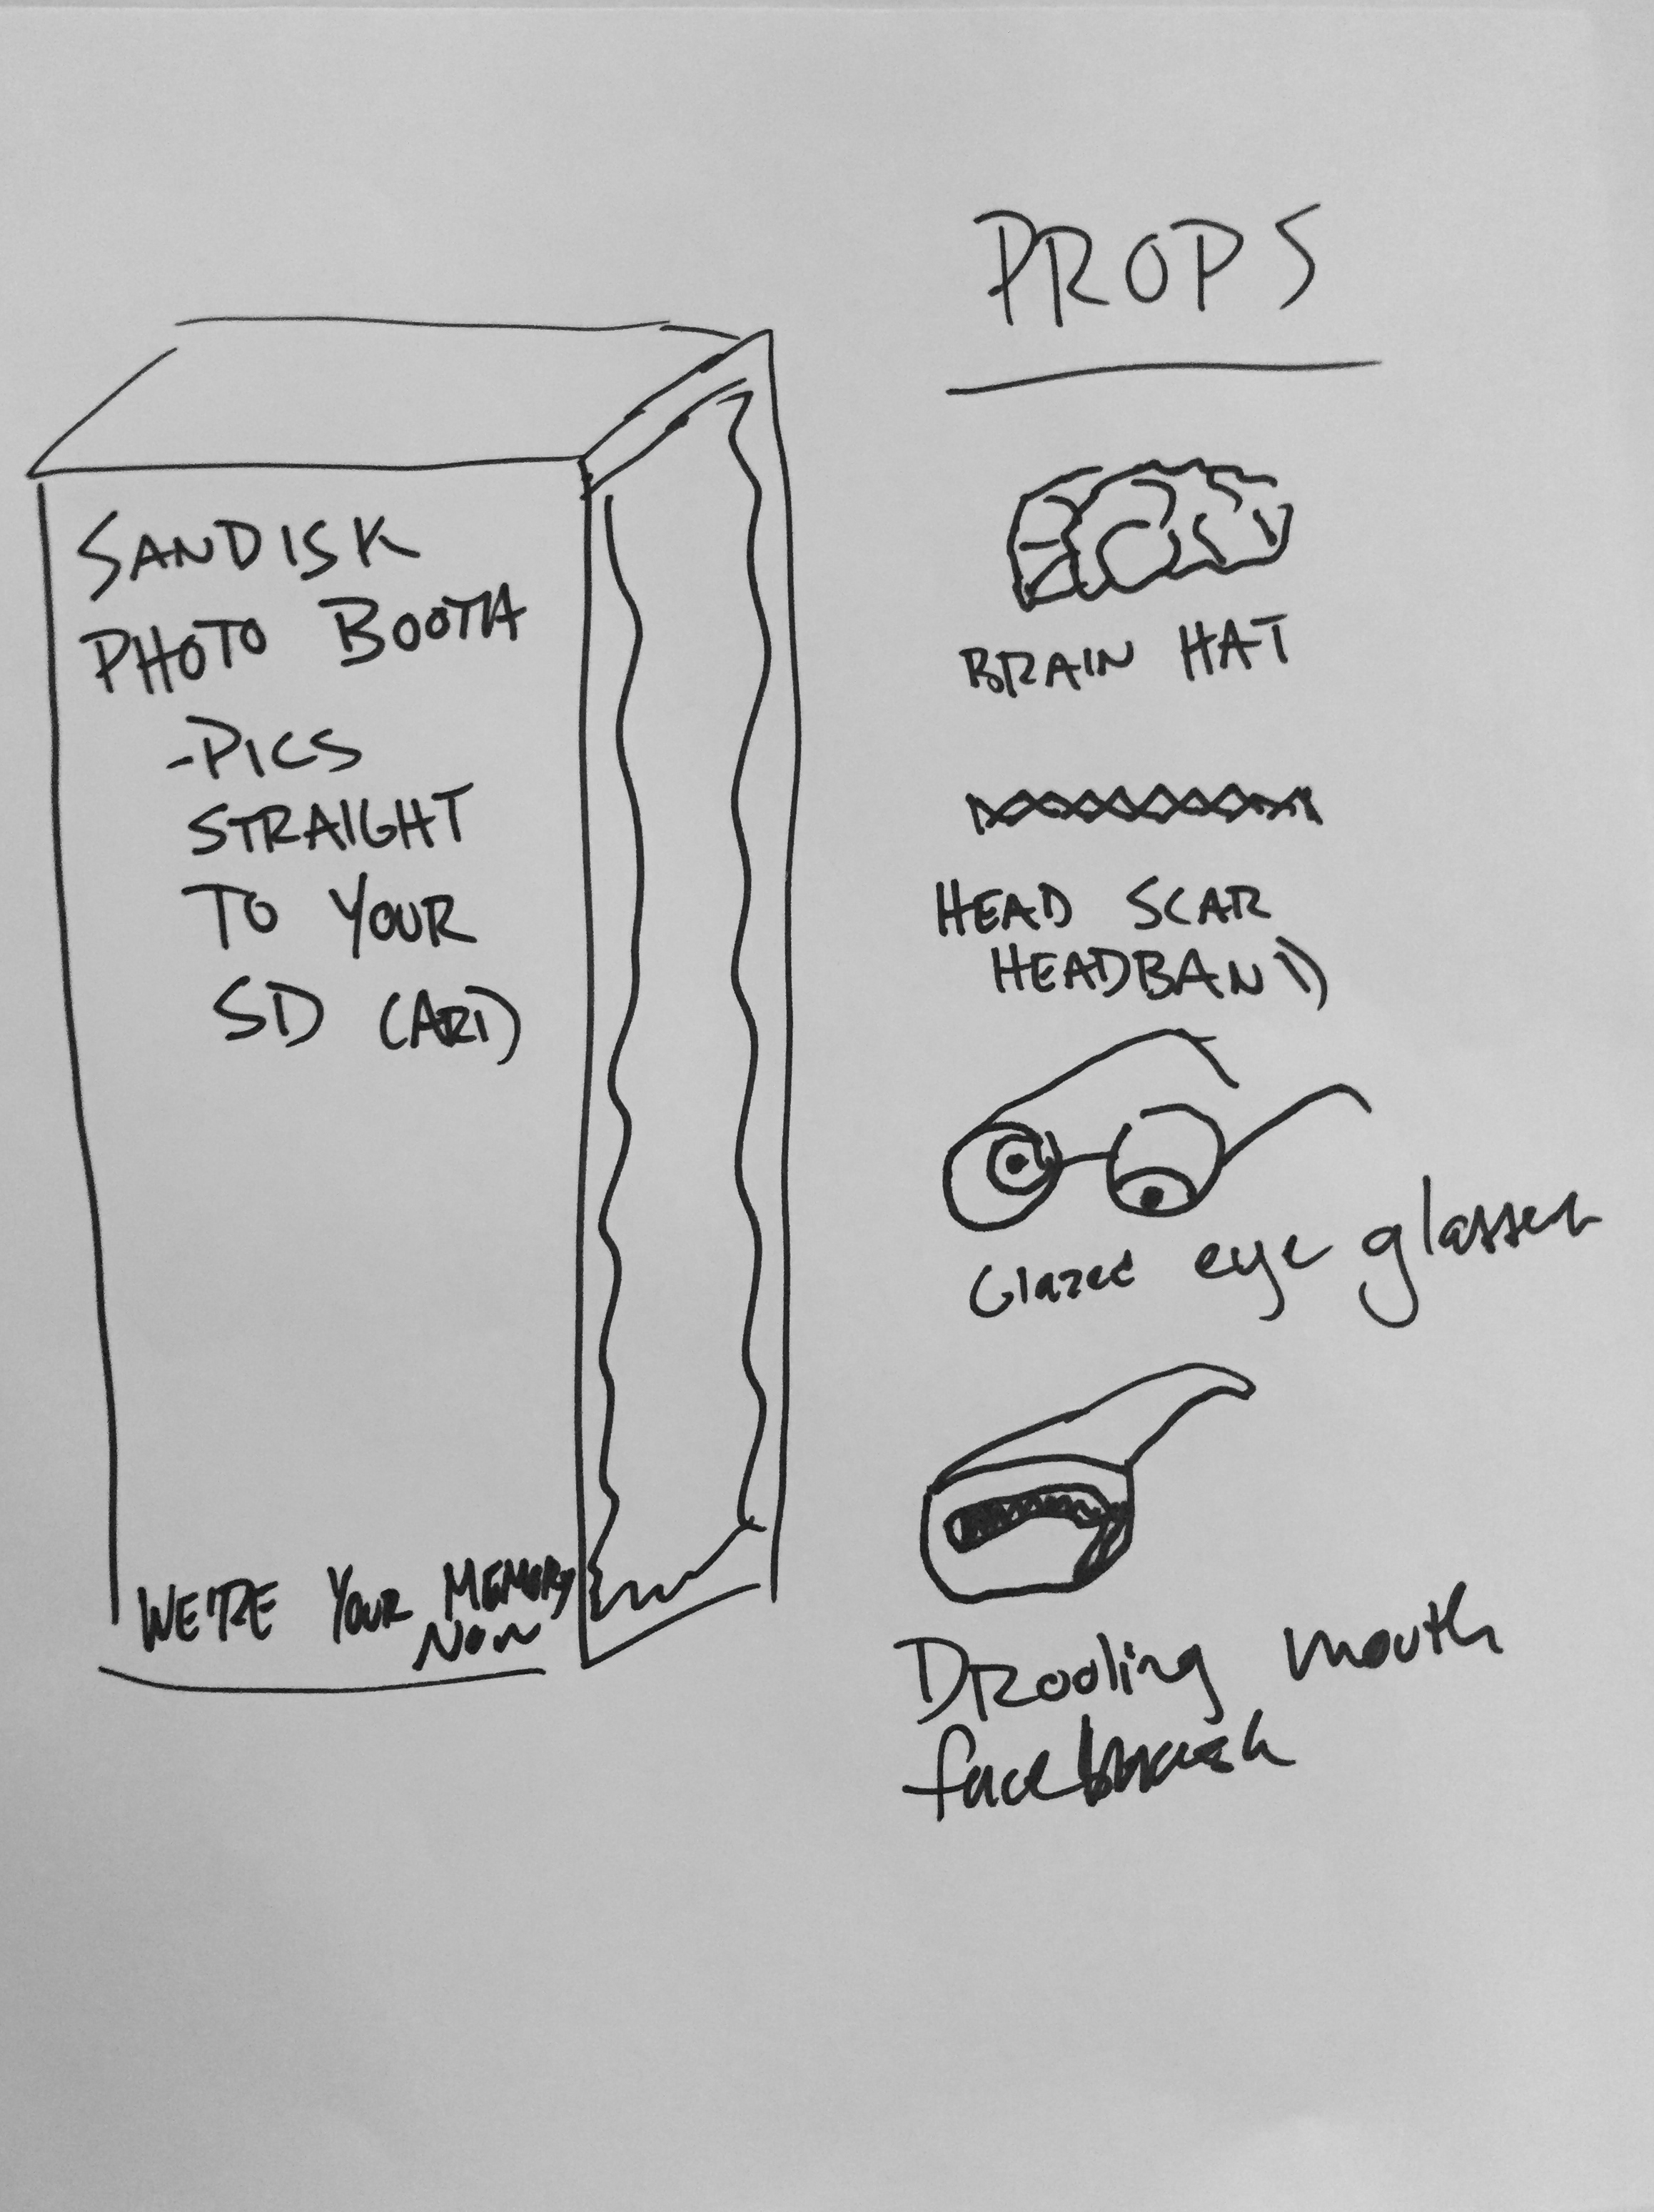 SANDISK
PHOTO BOOTH
-PICS
STRAIGHT
TO YOUR
SD CARD
WE'RE YOUR MEMORY
NOW
PROPS
BRAIN HAT
HEAD SCAR
HEADBAND
Glazed eye glasses
DRooling mouth
face